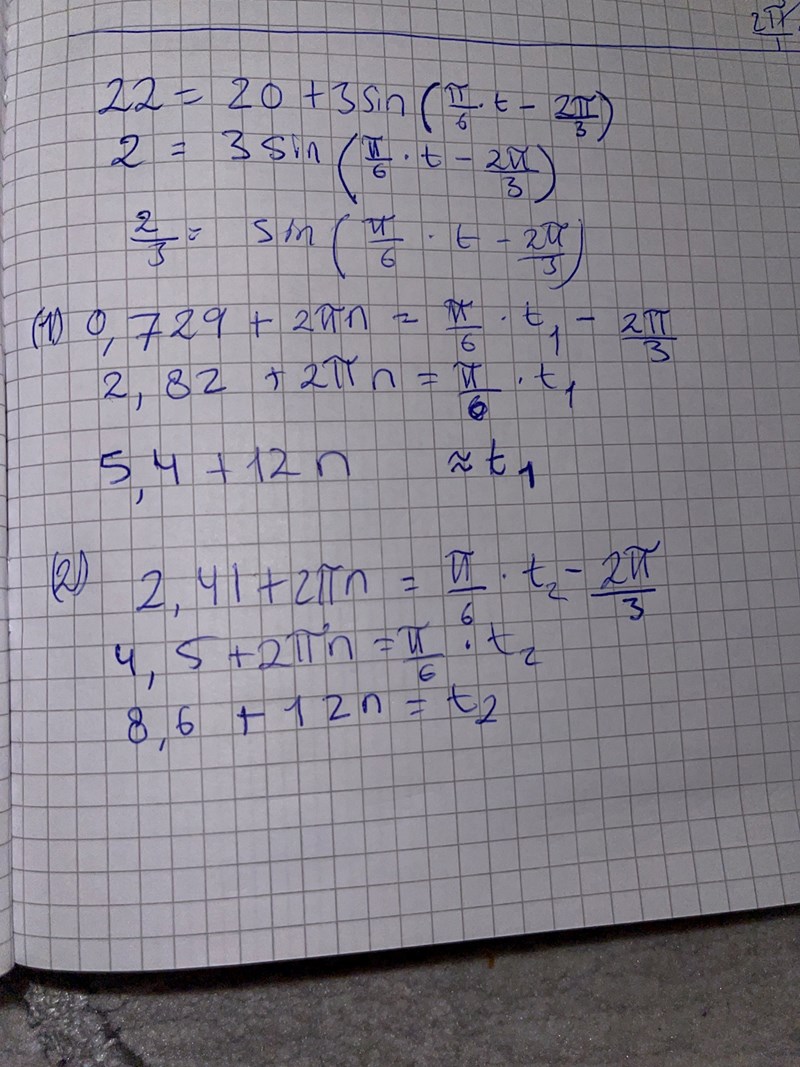 2π
22 = 20 + 3 sin(π/6 · t − 2π/3)
2 = 3 sin(π/6 · t − 2π/3)
2/3 = sin(π/6 · t − 2π/3)
(1) 0,729 + 2πn = π/6 · t₁ − 2π/3
2,82 + 2πn = π/6 · t₁
5,4 + 12n ≈ t₁
(2) 2,41 + 2πn = π/6 · t₂ − 2π/3
4,5 + 2πn = π/6 · t₂
8,6 + 12n = t₂